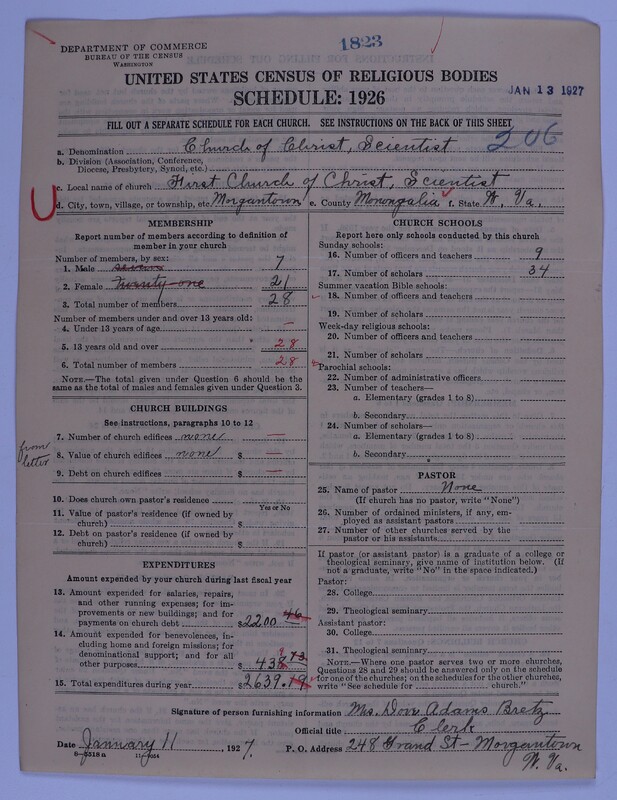 1823
DEPARTMENT OF COMMERCE
BUREAU OF THE CENSUS
WASHINGTON
UNITED STATES CENSUS OF RELIGIOUS BODIES
SCHEDULE: 1926
JAN 13 1927
FILL OUT A SEPARATE SCHEDULE FOR EACH CHURCH. SEE INSTRUCTIONS ON THE BACK OF THIS SHEET
206
a. Denomination Church of Christ, Scientist
b. Division (Association, Conference,
Diocese, Presbytery, Synod, etc.)
c. Local name of church First Church of Christ, Scientist
d. City, town, village, or township, etc. Morgantown e. County Monongalia f. State W. Va.
MEMBERSHIP
Report number of members according to definition of
member in your church
Number of members, by sex:
1. Male seven 7
2. Female twenty-one 21
3. Total number of members 28
Number of members under and over 13 years old:
4. Under 13 years of age —
5. 13 years old and over 28
6. Total number of members 28
NOTE.—The total given under Question 6 should be
same as the total of males and females given under Question 3.
CHURCH BUILDINGS
See instructions, paragraphs 10 to 12
from
letter
7. Number of church edifices none —
8. Value of church edifices none $ —
9. Debt on church edifices $ —
10. Does church own pastor's residence
Yes or No
11. Value of pastor's residence (if owned by
church) $
12. Debt on pastor's residence (if owned by
church) $
EXPENDITURES
Amount expended by your church during last fiscal year
13. Amount expended for salaries, repairs,
and other running expenses; for im-
provements or new buildings; and for
payments on church debt $2200 46
14. Amount expended for benevolences, in-
cluding home and foreign missions; for
denominational support; and for all
other purposes $ 438 73
15. Total expenditures during year $2639.19
CHURCH SCHOOLS
Report here only schools conducted by this church
Sunday schools:
16. Number of officers and teachers 9
17. Number of scholars 34
Summer vacation Bible schools:
18. Number of officers and teachers
19. Number of scholars
Week-day religious schools:
20. Number of officers and teachers
21. Number of scholars
Parochial schools:
22. Number of administrative officers
23. Number of teachers—
a. Elementary (grades 1 to 8)
b. Secondary
24. Number of scholars—
a. Elementary (grades 1 to 8)
b. Secondary
PASTOR
25. Name of pastor None
(If church has no pastor, write "None")
26. Number of ordained ministers, if any, em-
ployed as assistant pastors
27. Number of other churches served by the
pastor or his assistants
If pastor (or assistant pastor) is a graduate of a college or
theological seminary, give name of institution below. (If
not a graduate, write "No" in the space indicated.)
Pastor:
28. College
29. Theological seminary
Assistant pastor:
30. College
31. Theological seminary
NOTE.—Where one pastor serves two or more churches,
Questions 28 and 29 should be answered only on the schedule
for one of the churches; on the schedules for the other churches,
write "See schedule for church."
Signature of person furnishing information Ms. Dove Adams Bretz
Official title Clerk
Date January 11, 1927. P. O. Address 248 Grand St - Morgantown
W. Va.